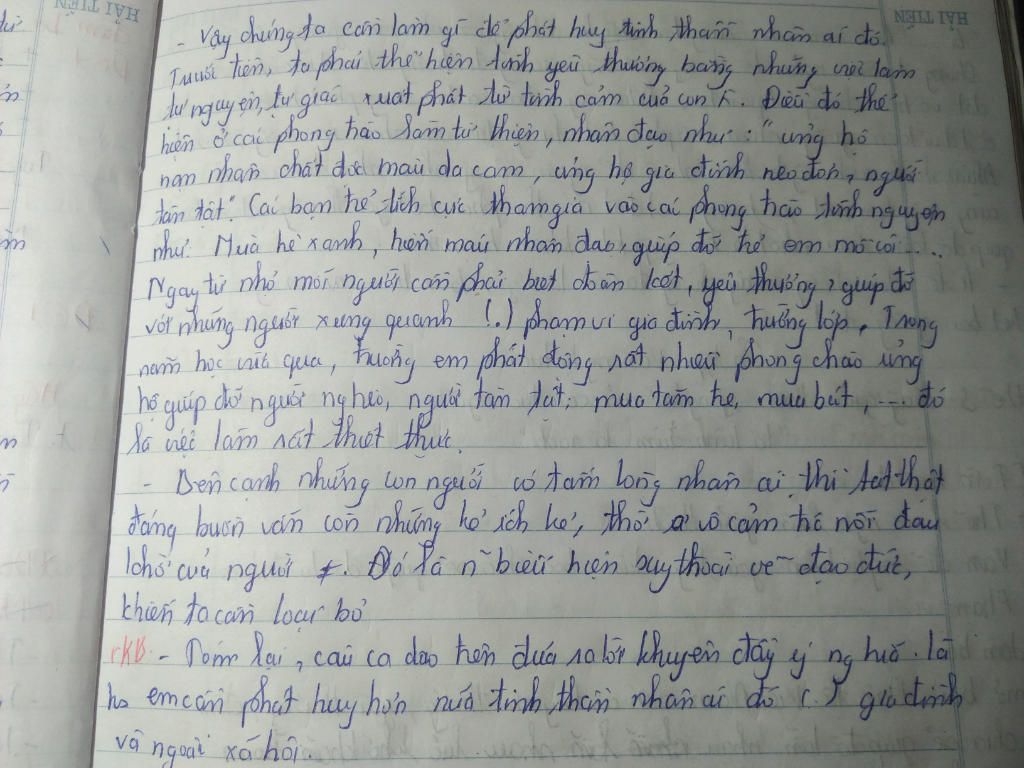 HẢI TIẾN
HẢI TIẾN
- Vậy chúng ta cần làm gì để phát huy tinh thần nhân ái đó.
Trước tiên, ta phải thể hiện tình yêu thương bằng những việc làm
tự nguyện, tự giác xuất phát từ tình cảm của con ng. Điều đó thể
hiện ở các phong trào làm từ thiện, nhân đạo như: "ủng hộ
nạn nhân chất độc màu da cam, ủng hộ gia đình neo đơn, người
tàn tật". Các bạn trẻ tích cực tham gia vào các phong trào tình nguyện
như: Mùa hè xanh, hiến máu nhân đạo, giúp đỡ trẻ em mồ côi....
Ngay từ nhỏ mỗi người cần phải biết đoàn kết, yêu thương, giúp đỡ
với những người xung quanh (.) phạm vi gia đình, trường lớp. Trong
năm học vừa qua, trường em phát động rất nhiều phong chào ủng
hộ giúp đỡ người nghèo, người tàn tật; mua tăm tre, mua bút,.... đó
là việc làm rất thiết thực.
- Bên cạnh những con người có tấm lòng nhân ái thì thật
đáng buồn vẫn còn những kẻ ích kỉ, thờ ơ vô cảm trc nỗi đau
khổ của người ≠. Đó là n~ biểu hiện suy thoái về đạo đức,
khiến ta cần loại bỏ
rKB - Tóm lại, câu ca dao trên đưa ra lời khuyên đầy ý nghĩa. Là
hs em cần phát huy hơn nữa tinh thần nhân ái đó (.) gia đình
và ngoài xã hội.